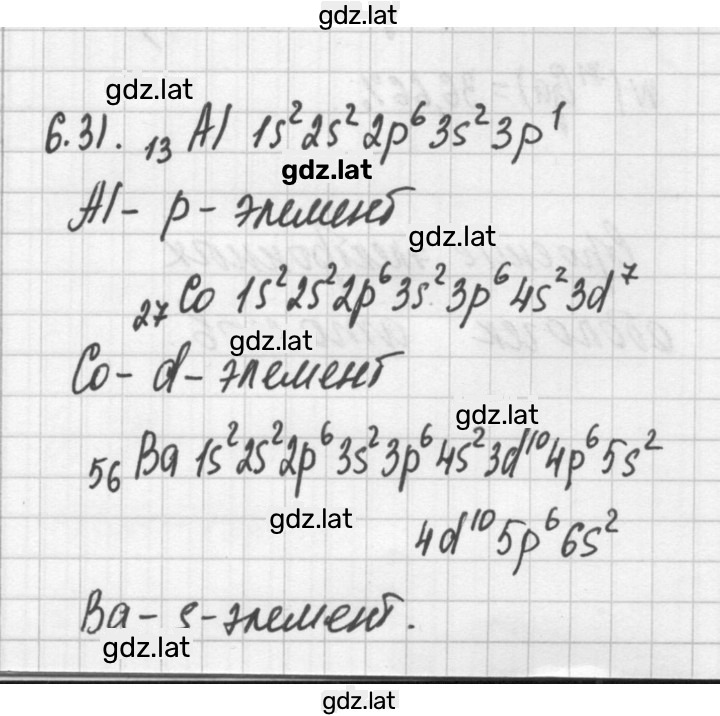 gdz.lat
gdz.lat
6.31. ₁₃Al 1s²2s²2p⁶3s²3p¹
gdz.lat
Al - p - элемент
gdz.lat
₂₇Co 1s²2s²2p⁶3s²3p⁶4s²3d⁷
gdz.lat
Co - d - элемент
gdz.lat
₅₆Ba 1s²2s²2p⁶3s²3p⁶4s²3d¹⁰4p⁶5s²
gdz.lat
4d¹⁰5p⁶6s²
Ba - s - элемент.
gdz.lat
gdz.lat